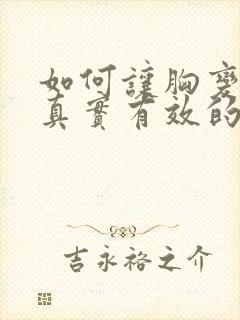 如何讓胸變
真實有效的
吉永裕之介